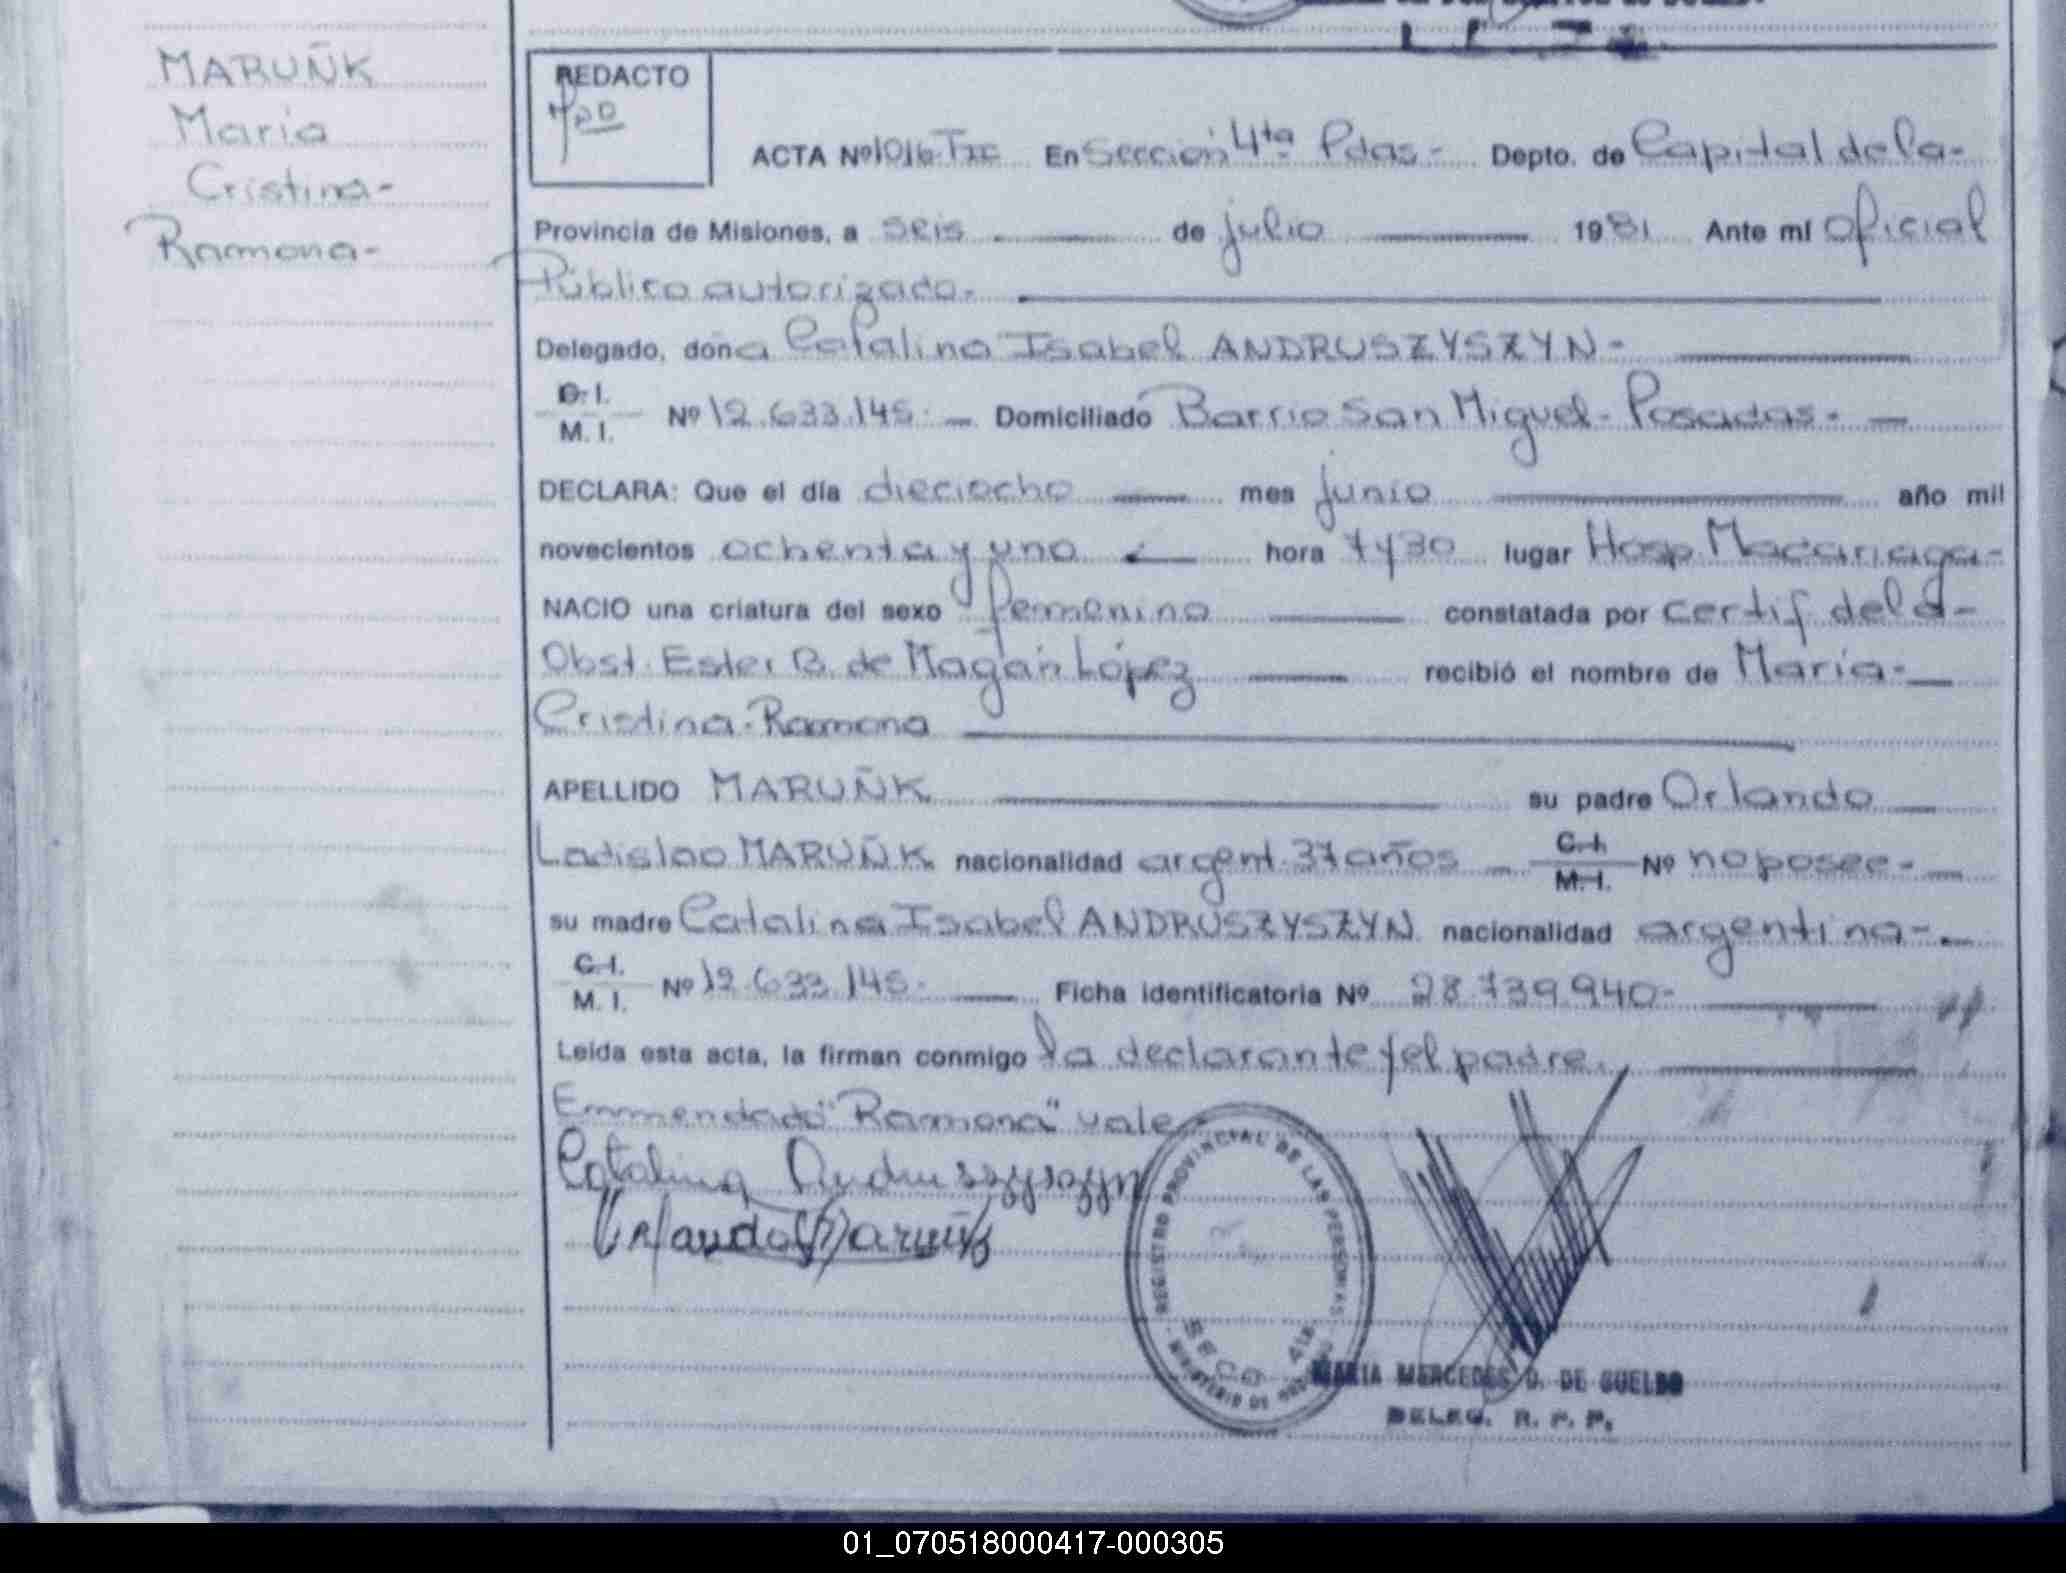 MARUÑK
María
Cristina-
Ramona-
REDACTO
ACTA Nº 1016-TIC En Sección 4ta Pdas- Depto. de Capital de la-
Provincia de Misiones, a seis de julio 1981 Ante mí oficial
Público autorizado-
Delegado, doña Catalina Isabel ANDRUSZYSZYN-
C.I. M.I. Nº 12.633.145- Domiciliado Barrio San Miguel-Posadas-
DECLARA: Que el día dieciocho mes junio año mil
novecientos ochenta y uno hora 7 y 30 lugar Hosp. Madariaga-
NACIO una criatura del sexo femenino constatada por certif de la-
Obst. Ester B. de Magán López recibió el nombre de María-
Cristina-Ramona
APELLIDO MARUÑK su padre Orlando
Ladislao MARUÑK nacionalidad argent. 37 años C.I. M.I. Nº no posee-
su madre Catalina Isabel ANDRUSZYSZYN nacionalidad argentina-
C.I. M.I. Nº 12.633.145- Ficha identificatoria Nº 28.739.940-
Leída esta acta, la firman conmigo la declarante y el padre.
Emmendado "Ramona" vale
Catalina Andruszyszyn
Orlando Maruñk
REGISTRO PROVINCIAL DE LAS PERSONAS
MINISTERIO DE GOBIERNO
SECC. 4ta
MARIA MERCEDES D. DE SUELDO
DELEG. R. P. P.
01_070518000417-000305